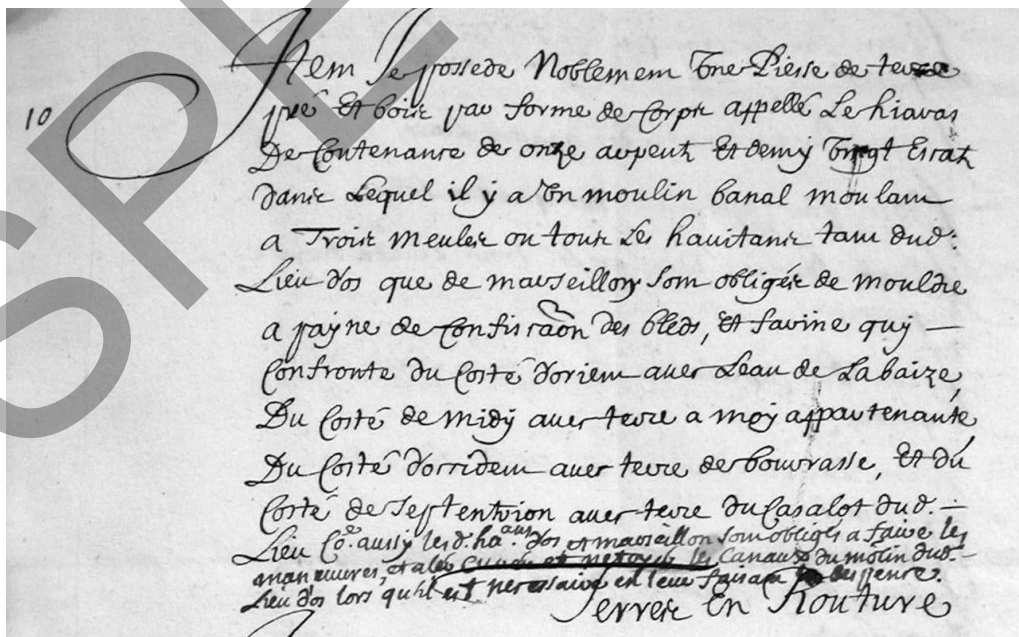 SPE
10
Item Je possede Noblement Une Piesse de terre
pré Et bois par forme de Corps appellé Le hiavas
De Contenance de onze arpents Et demy Vingt Escatz
dans Lequel il y a Un moulin banal moulant
a Trois meules ou tous Les havitans tant dud:
Lieu d'os que de marseillon sont obligés de mouldre
a payne de Confiscãon des bleds, Et farine quy —
Confronte du Costé d'orient avec Leau de Labaize,
Du Costé de midy avec terre a moy appartenante,
Du Costé d'occident avec terre de bourrasse, Et du
Costé de Septentrion avec terre du Casalot dud. —
Lieu Cõe aussy les d. ha.ans d'os et marseillon sont obligés a faire les
manœuvres, et a les Curer et netoyer les Canaux du molin dud—
Lieu d'os lors qu'hil est necessaire en leur faisant la despence.
Terres En Routure